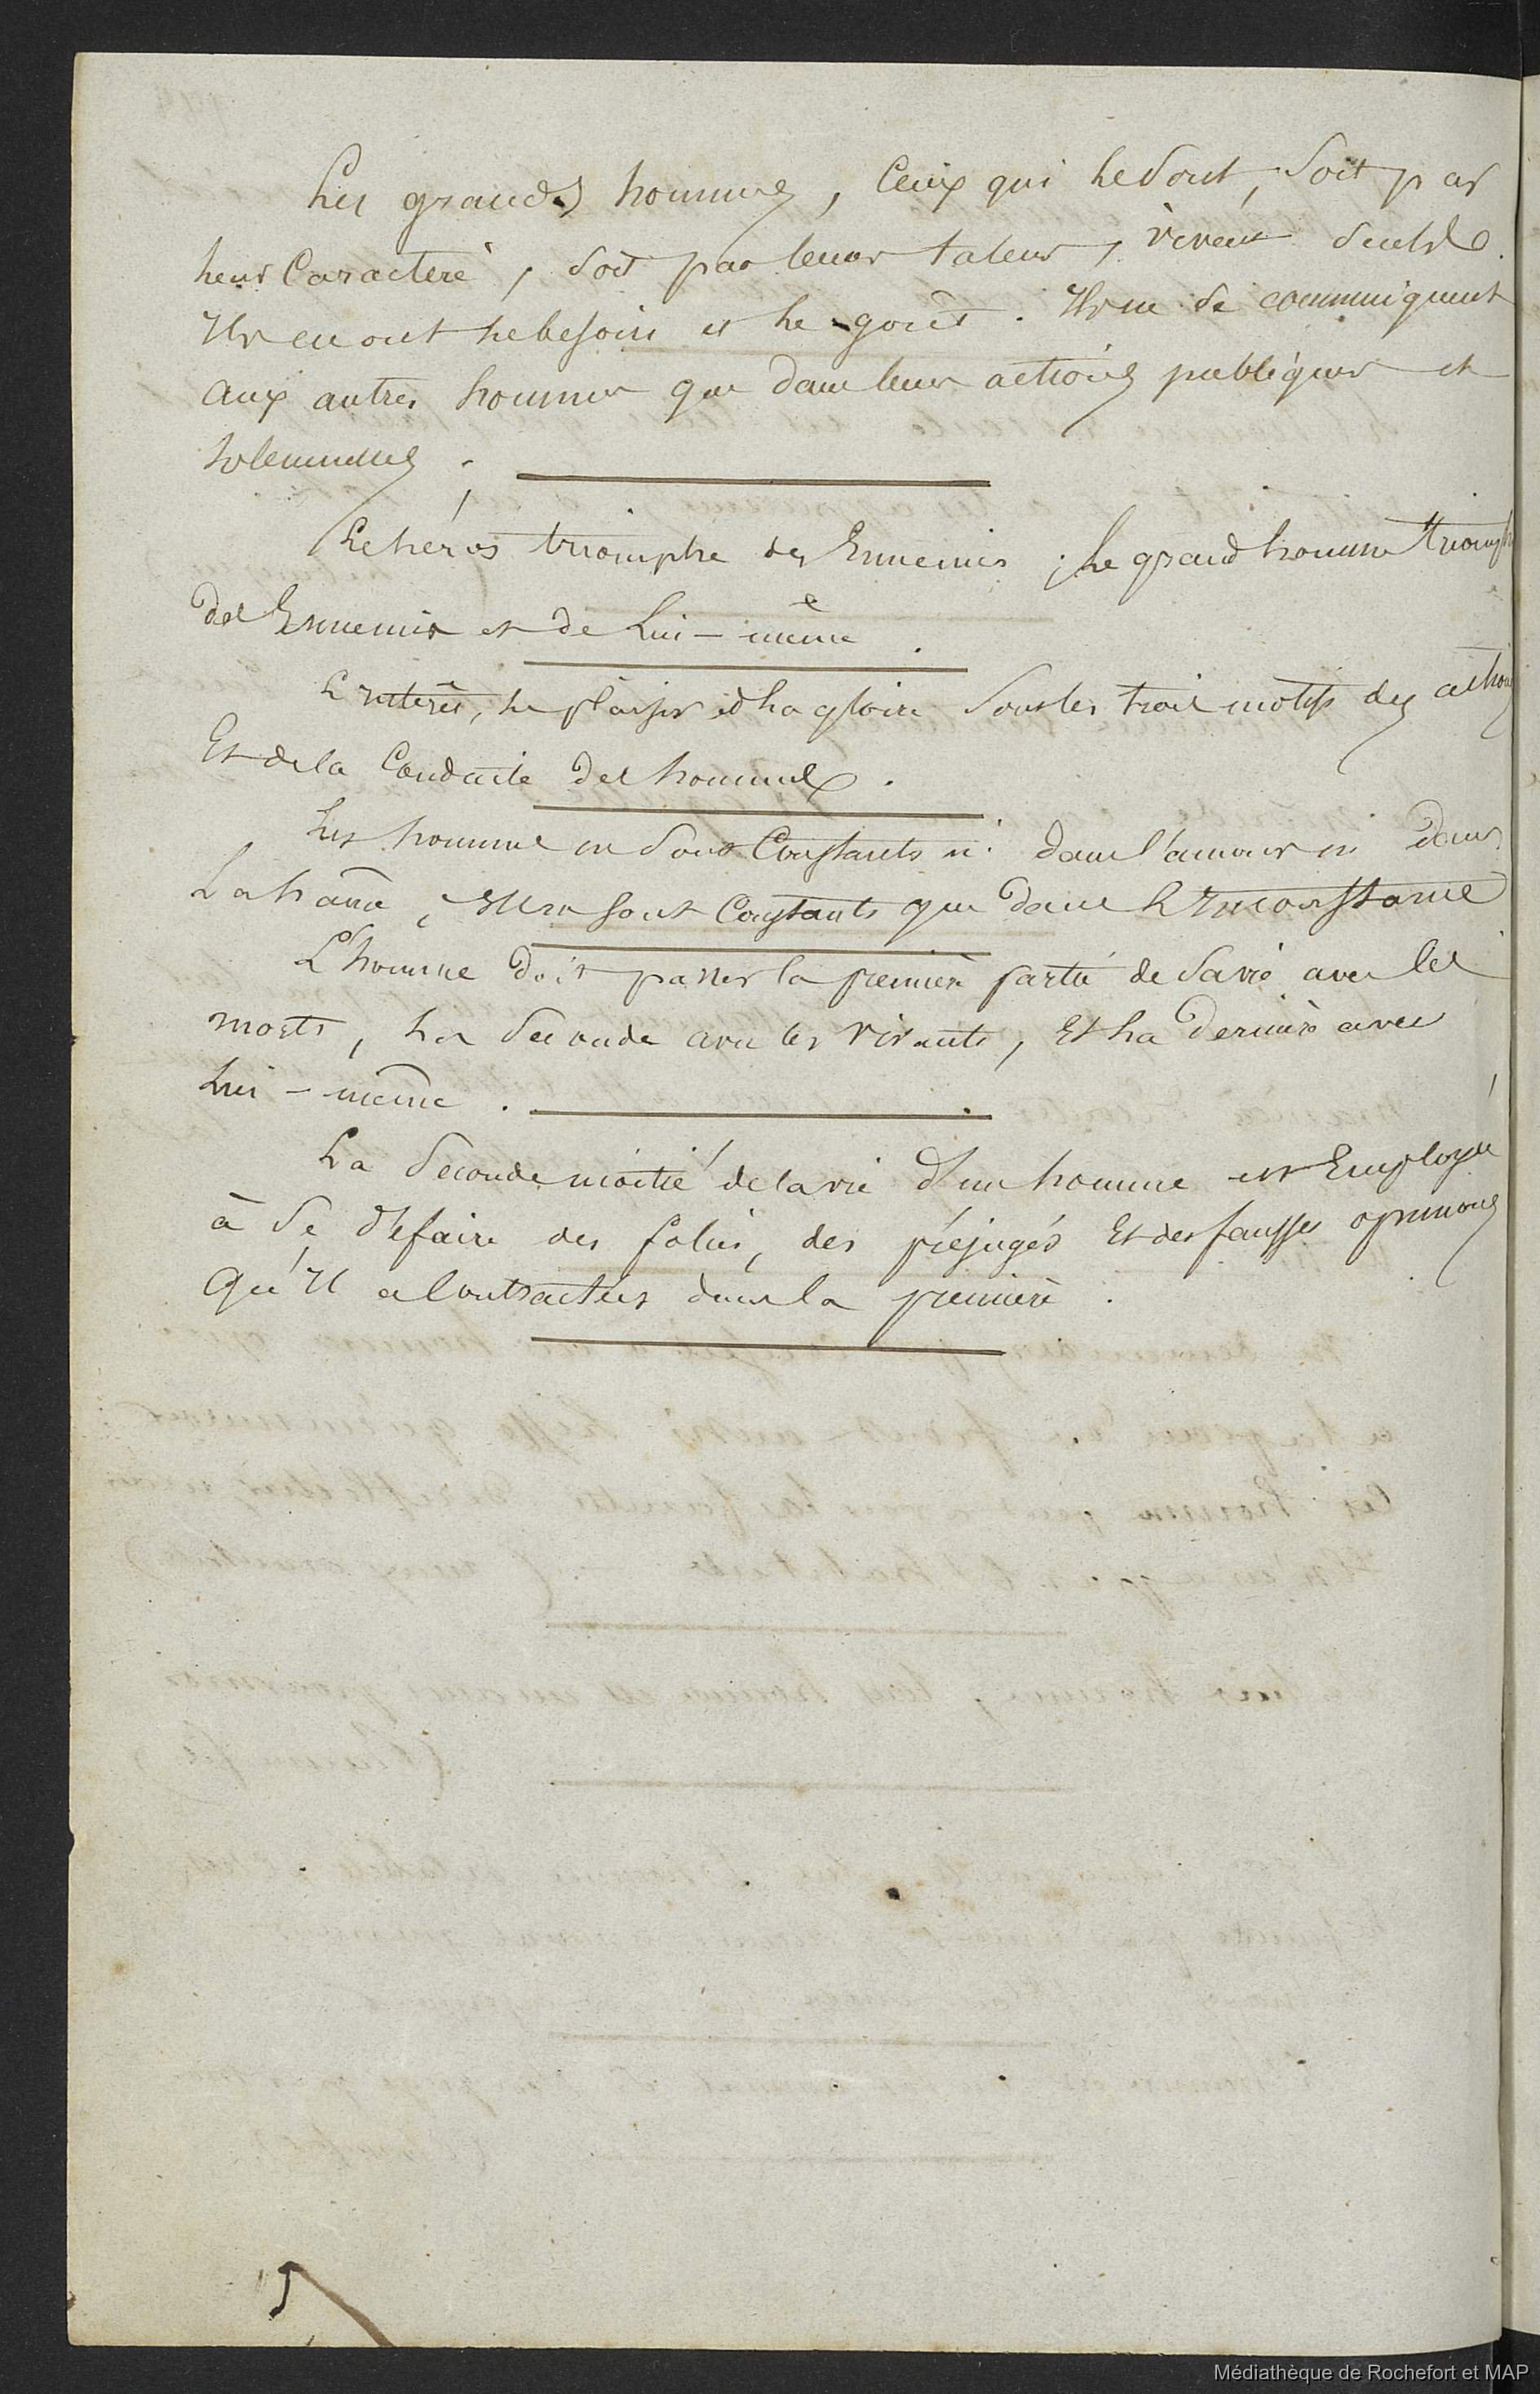 Les grands hommes, Ceux qui le Sont, Soit par
leur Caractere, Soit par leurs talens, vivent Seuls.
Ils en ont le besoin et le goût. Ils ne Se communiquent
aux autres hommes que dans leurs actions publiques et
Solemnelles.
Le héros triomphe des Ennemis; Le grand homme triomphe
des Ennemis et de Lui-même.
L'Intérêt, Le plaisir et La gloire Sont les trois motifs des actions
Et de la Conduite des hommes.
Les hommes ne Sont Constants ni dans l'amour ni dans
La haine, Ils ne sont Constants que dans L'Inconstance
L'homme doit passer la premiere partie de Sa vie avec les
morts, La Seconde avec les vivants, Et La derniere avec
Lui-même.
La Seconde moitié de la vie d'un homme est Employée
à Se défaire des folies, des préjugés Et des fausses opinions
Qu'Il a Contractées dans la premiere.
Médiathèque de Rochefort et MAP